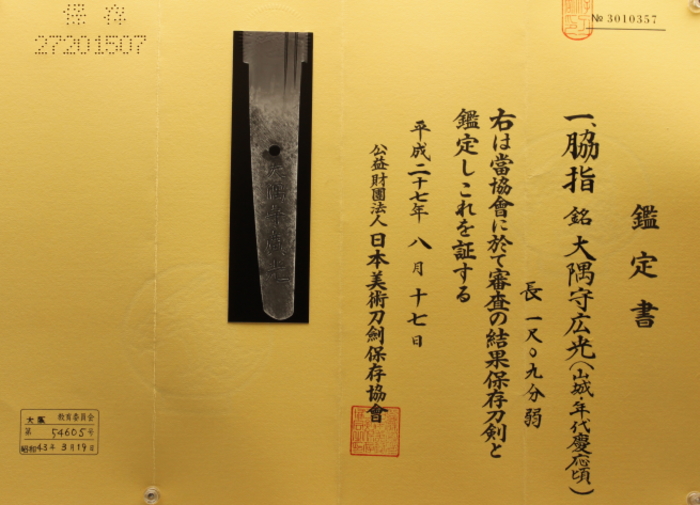 保存
27201507
№ 3010357
鑑定書
一、脇指 銘 大隅守広光(山城・年代慶応頃)
長 一尺〇九分弱
右は當協會に於て審査の結果保存刀剣と
鑑定しこれを証する
平成二十七年 八月 十七日
公益財團法人 日本美術刀劍保存協會
大阪 教育委員会
第 54605号
昭和43年3月19日